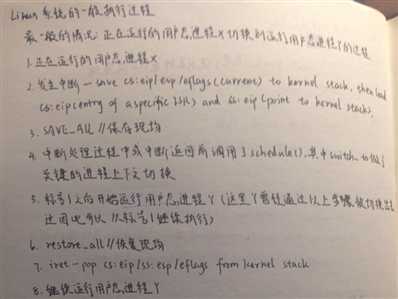 Linux 系统的一般执行过程
最一般的情况: 正在运行的用户态进程X切换到运行用户态进程Y的过程
1. 正在运行的用户态进程X
2. 发生中断—save cs:eip/esp/eflags(current) to kernel stack, then load
cs:eip(entry of a specific ISR) and ss:eip(point to kernel stack).
3. SAVE_ALL //保存现场
4. 中断处理过程中或中断返回前调用了schedule(),其中switch_to做了
关键的进程上下文切换
5. 标号1之后开始运行用户态进程Y(这里Y曾经通过以上步骤被切换出去
过因此可以从标号1继续执行)
6. restore_all //恢复现场
7. iret-pop cs:eip/ss:esp/eflags from kernel stack
8. 继续运行用户态进程Y